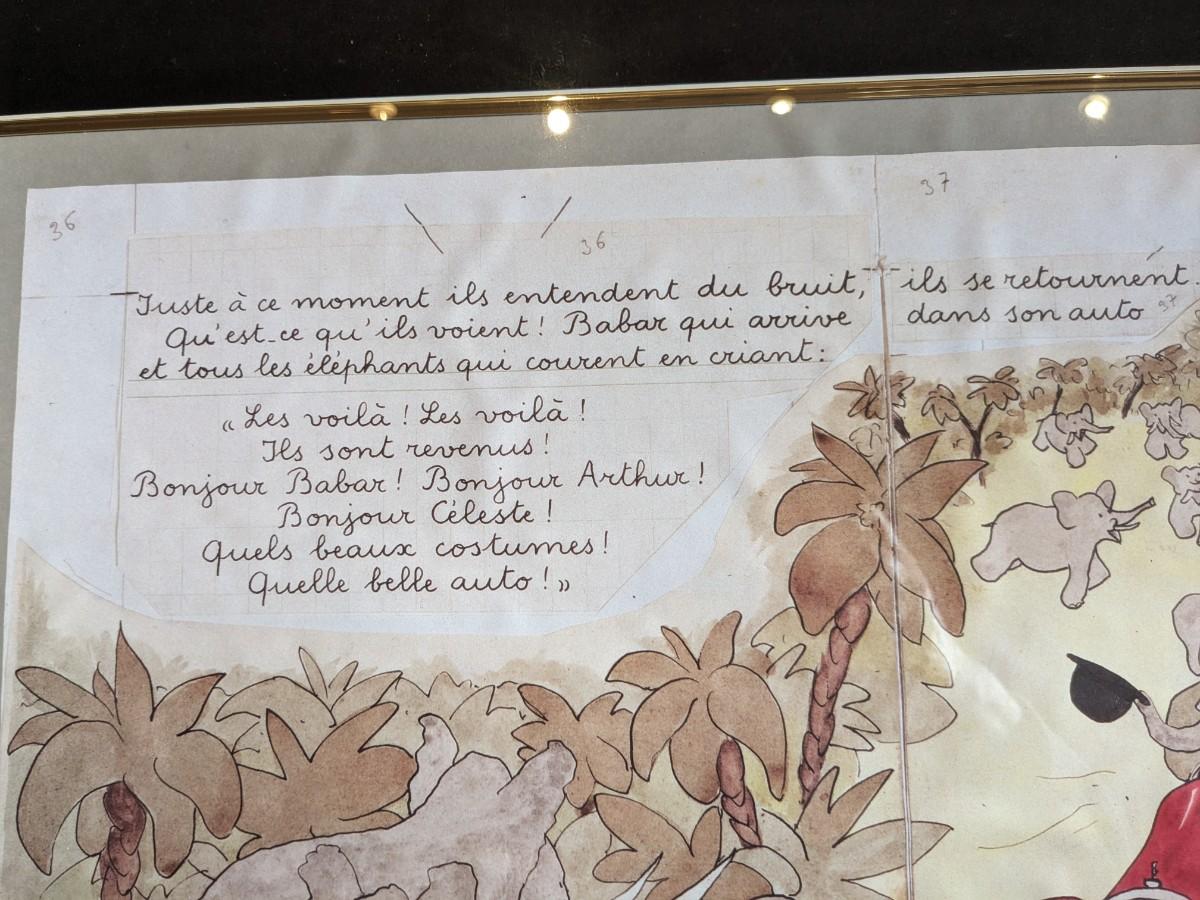 36
36
37
Juste à ce moment ils entendent du bruit, ils se retournent.
Qu'est-ce qu'ils voient ! Babar qui arrive dans son auto 37
et tous les éléphants qui courent en criant :
« Les voilà ! Les voilà !
Ils sont revenus !
Bonjour Babar ! Bonjour Arthur !
Bonjour Céleste !
Quels beaux costumes !
Quelle belle auto ! »